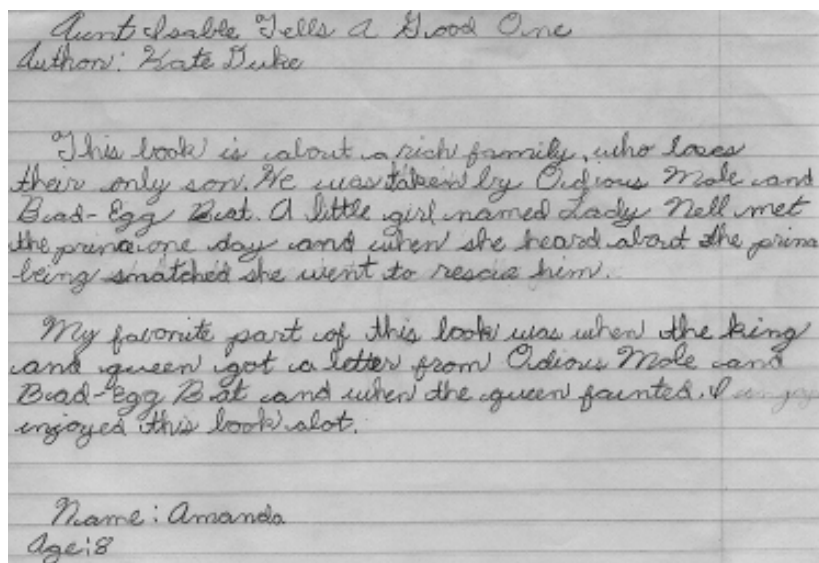 Aunt Isable Tells A Good One
Author: Kate Duke
This book is about a rich family, who loses
their only son. He was taken by Odious Mole and
Bad-Egg Bat. A little girl named Lady Nell met
the prince one day and when she heard about the prince
being snatched she went to rescue him.
My favorite part of this book was when the king
and queen got a letter from Odious Mole and
Bad-Egg Bat and when the queen fainted. I
injoyed this book alot.
Name: Amanda
Age: 8